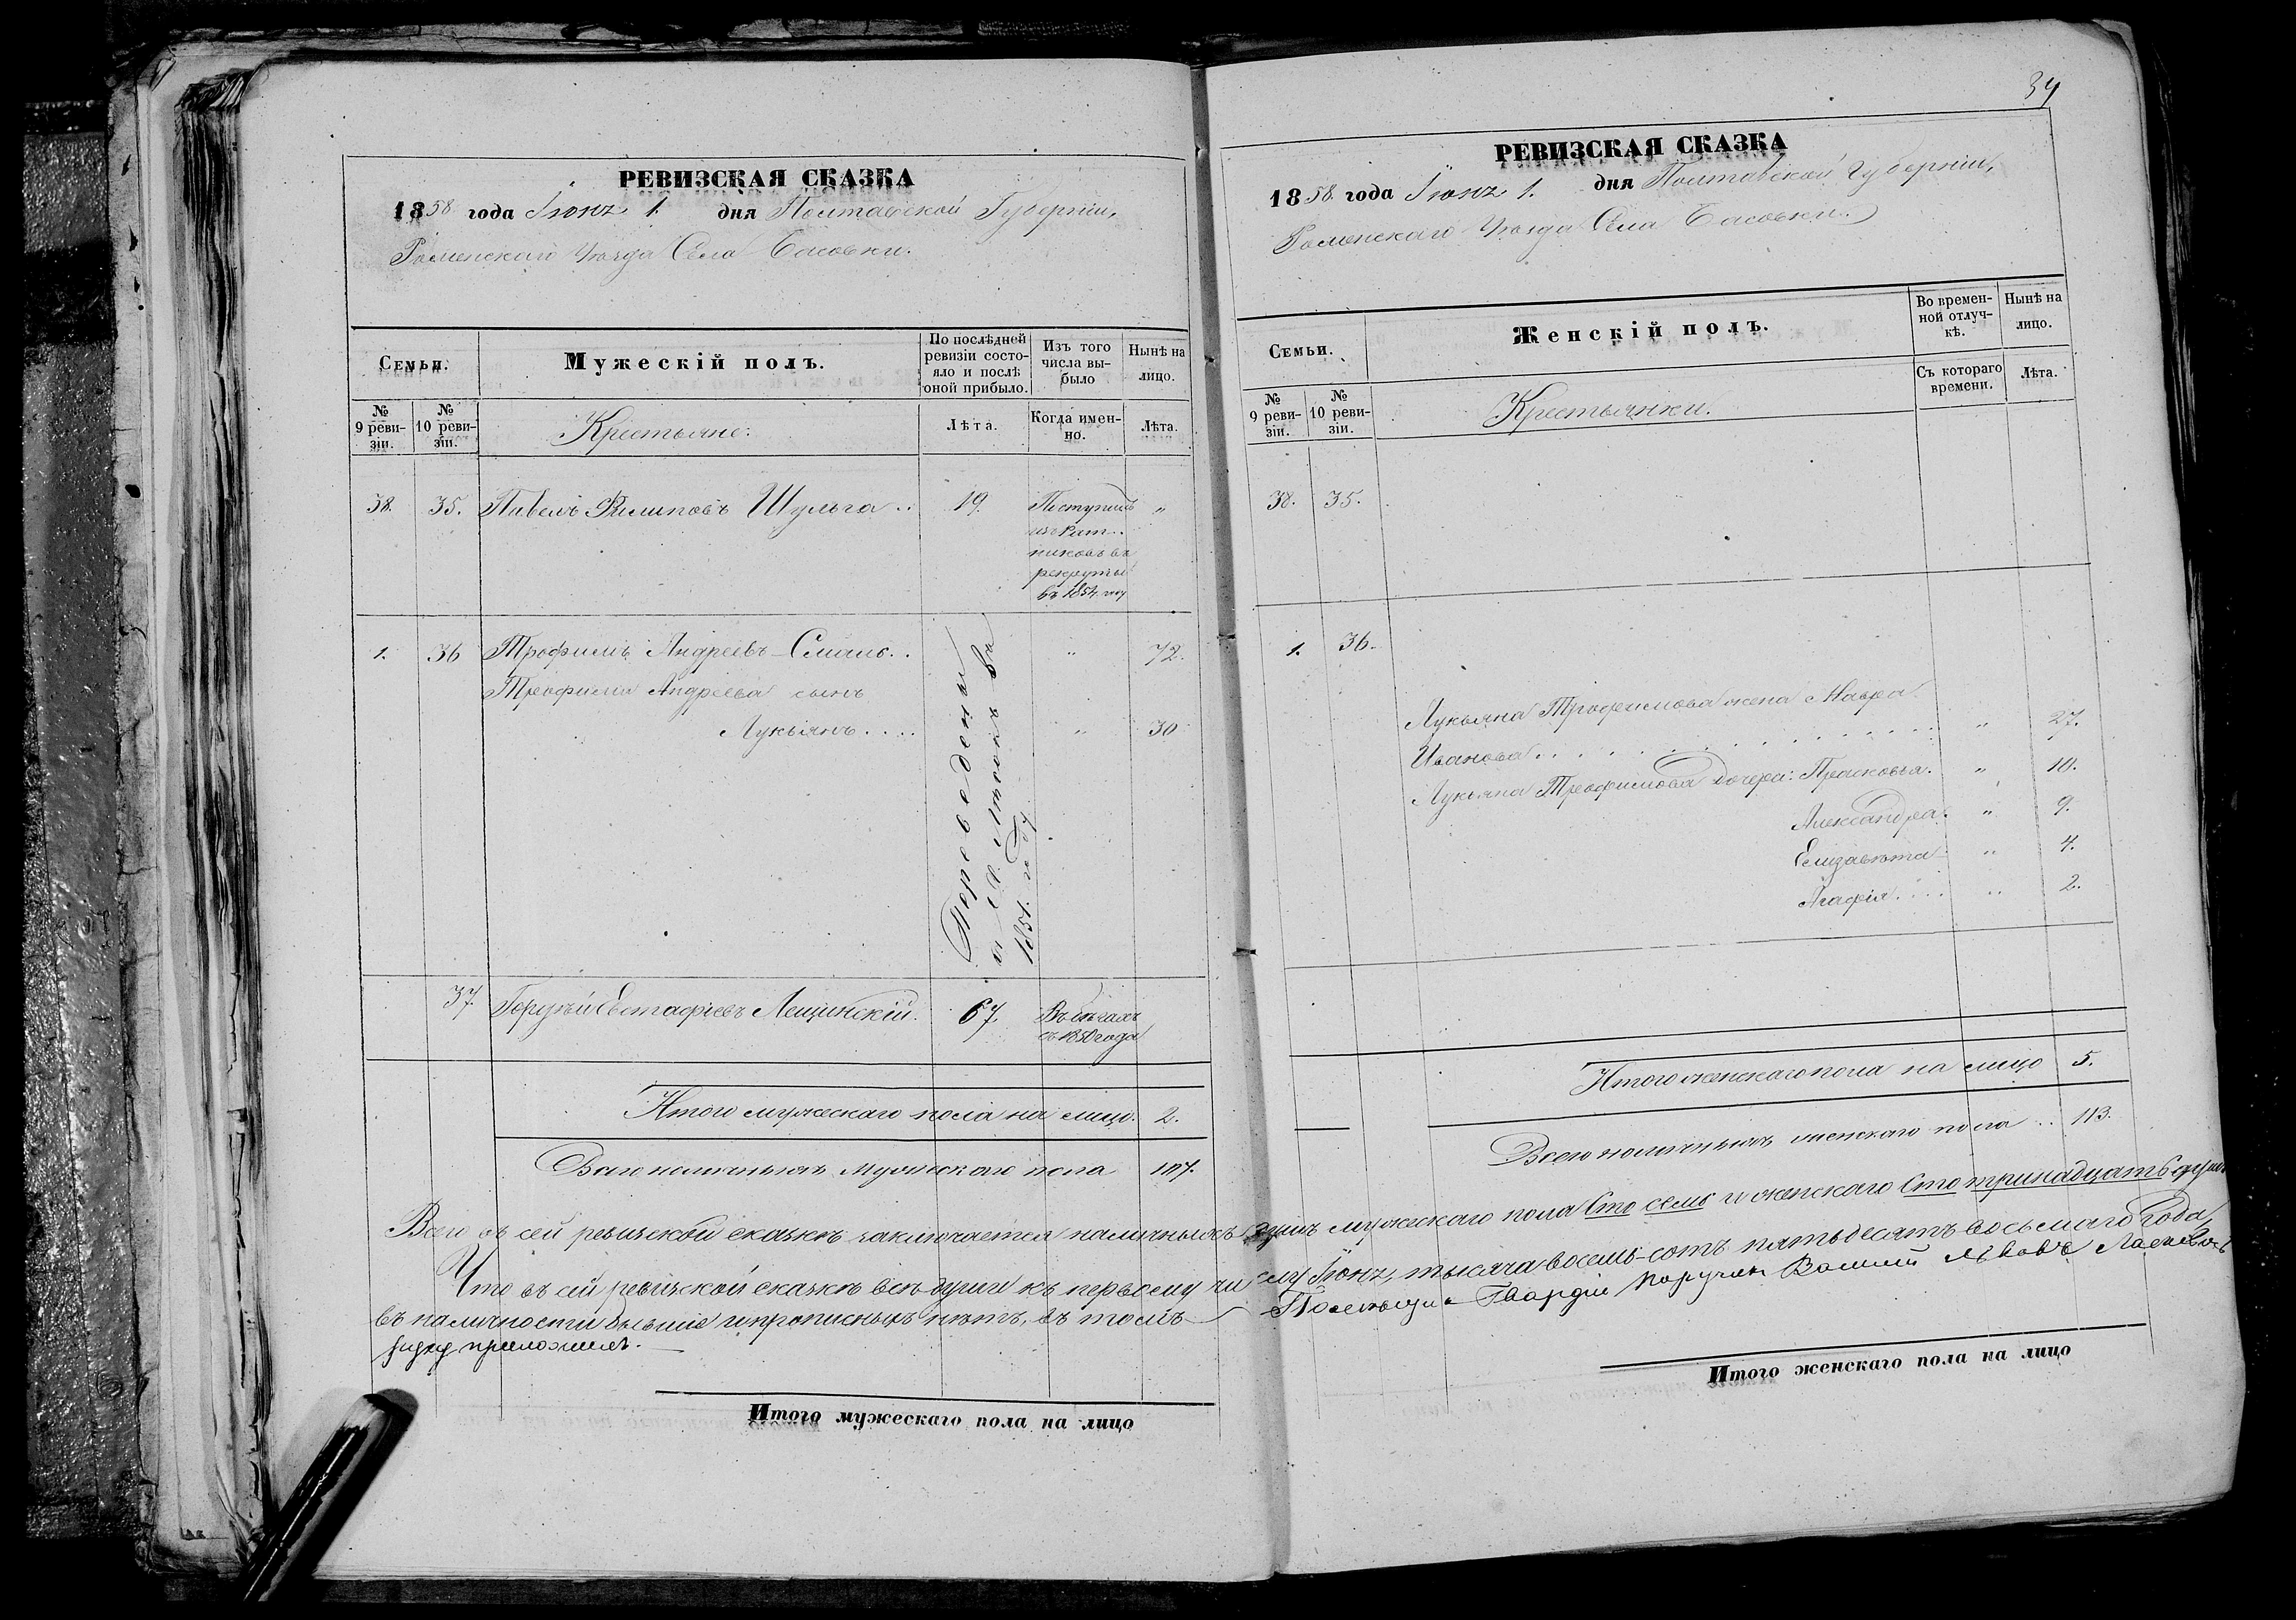 РЕВИЗСКАЯ СКАЗКА
1858 года Іюнь 1. дня Полтавской Губерніи,
Роменскаго Уѣзда Села Басовки.
Семьи.
Мужескій полъ.
По послѣдней ревизіи состояло и послѣ оной прибыло.
Изъ того числа выбыло
Нынѣ на лицо.
№ 9 ревизіи.
№ 10 ревизіи.
Крестьяне.
Лѣта.
Когда именно.
Лѣта.
38. 35. Павелъ Филиповъ Шульга .. 19. Поступилъ „
изъ Рат-
никовъ въ
рекруты
въ 1854 году
1. 36 Трофимъ Андреевъ „ 72.
Трофима Андреева сынъ
Лукьянъ .... „ 30
Переведены
изъ
1851. году
37. Евстафіевъ Лещинскій. 67. Въ бѣгахъ
съ 1850 года
Итого мужескаго пола на лицо. 2.
Всего наличныхъ мужескаго пола 107.
Итого мужескаго пола на лицо
34
РЕВИЗСКАЯ СКАЗКА
1858. года Іюнь 1. дня Полтавской Губерніи,
Роменскаго Уѣзда Села Басовки.
Семьи.
Женскій полъ.
Во временной отлучкѣ.
Нынѣ на лицо.
№ 9 ревизіи.
№ 10 ревизіи.
Крестьянки.
Съ котораго времени.
Лѣта.
38. 35.
1. 36.
Лукьяна Трофимова жена Мавра
Иванова . . . „ 27.
Лукьяна Трофимова дочери: Прасковья. „ 10.
Александра. „ 9.
Елизавета „ 4.
Агафія.... „ 2.
Итого женскаго пола на лицо 5.
Всего наличныхъ женскаго пола .. 113.
Всего въ сей ревизской сказкѣ заключается наличныхъ душъ мужескаго пола Сто семь и женскаго Сто тринадцать душъ
Что въ сей ревизской сказкѣ всѣ души къ первому числу Іюнь, тысяча восемь-сотъ пятьдесятъ восьмаго Года,
въ наличности бывшіе и прописныхъ нѣтъ, въ томъ Гвардіи Поручик Василий Львовъ
руку приложилъ.
Итого женскаго пола на лицо